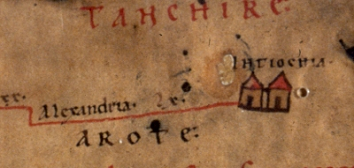 TANCHIRE
ANTIOCHIA.
XX.
Alexandria. Lx.
AROTE: